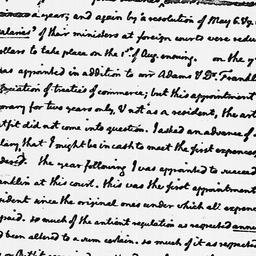 a year; and again by a resolution of May 6. 84.
salaries' of their ministers at foreign courts were reduc
ollars to take place on the 1st of Aug. ensuing. on the 7
was appointed in addition to mr Adams & Dr. Franklin
gociation of treaties of commerce; but this appointment
porary for two years only, & not as a resident, the art
utfit did not come into question. I asked an advance of
lary, that I might be in cash to meet the first expenses
dered. the year following I was appointed to succeed
anklin at this court. this was the first appointment
sident since the original ones under which all expen
paid. so much of the antient regulation as respected annu
d been altered to a sum certain. so much of it as respected